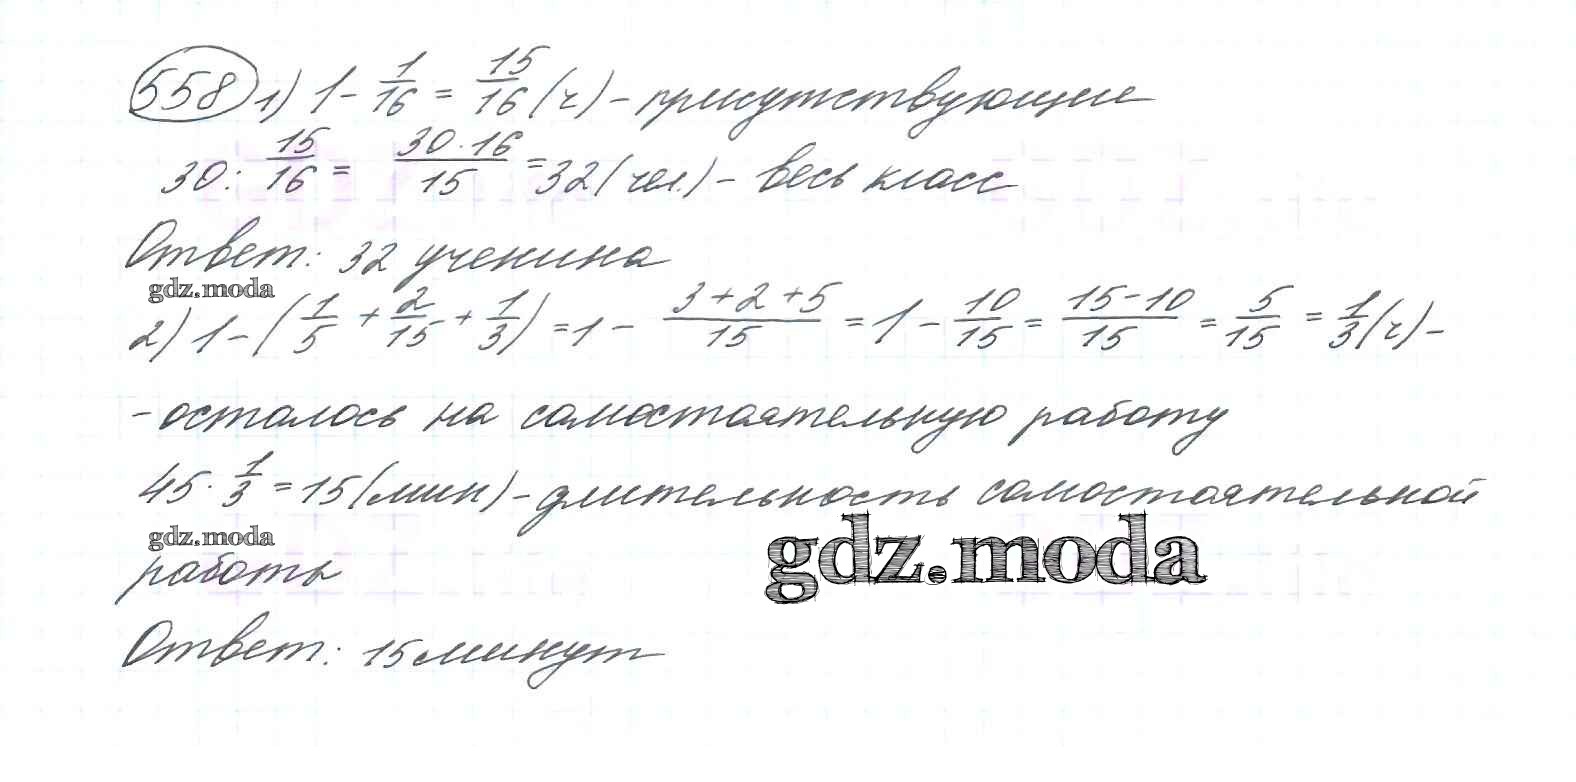 558 1) 1 - 1/16 = 15/16 (ч) - присутствующие
30 : 15/16 = 30·16/15 = 32 (чел.) - весь класс
Ответ: 32 ученика
gdz.moda
2) 1 - (1/5 + 2/15 + 1/3) = 1 - 3+2+5/15 = 1 - 10/15 = 15-10/15 = 5/15 = 1/3 (ч) -
- осталось на самостоятельную работу
45 · 1/3 = 15 (мин) - длительность самостоятельной
gdz.moda
gdz.moda
работы
Ответ: 15 минут